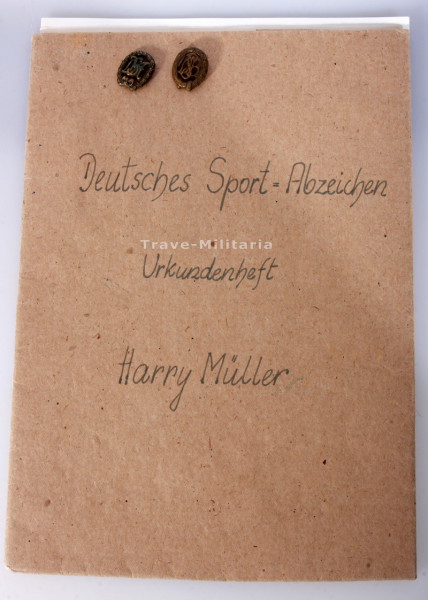 Deutsches Sport=Abzeichen
Trave-Militaria
Urkundenheft
Harry Müller